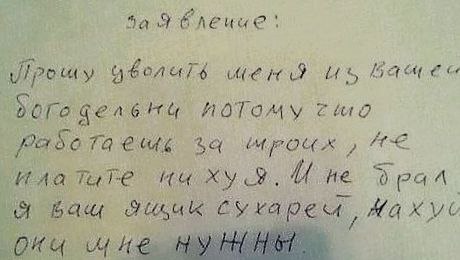 заявление:
Прошу уволить меня из вашей
богодельни потому что
работаешь за троих, не
платите ни хуя. И не брал
я ваш ящик сухарей, нахуй
они мне нужны.